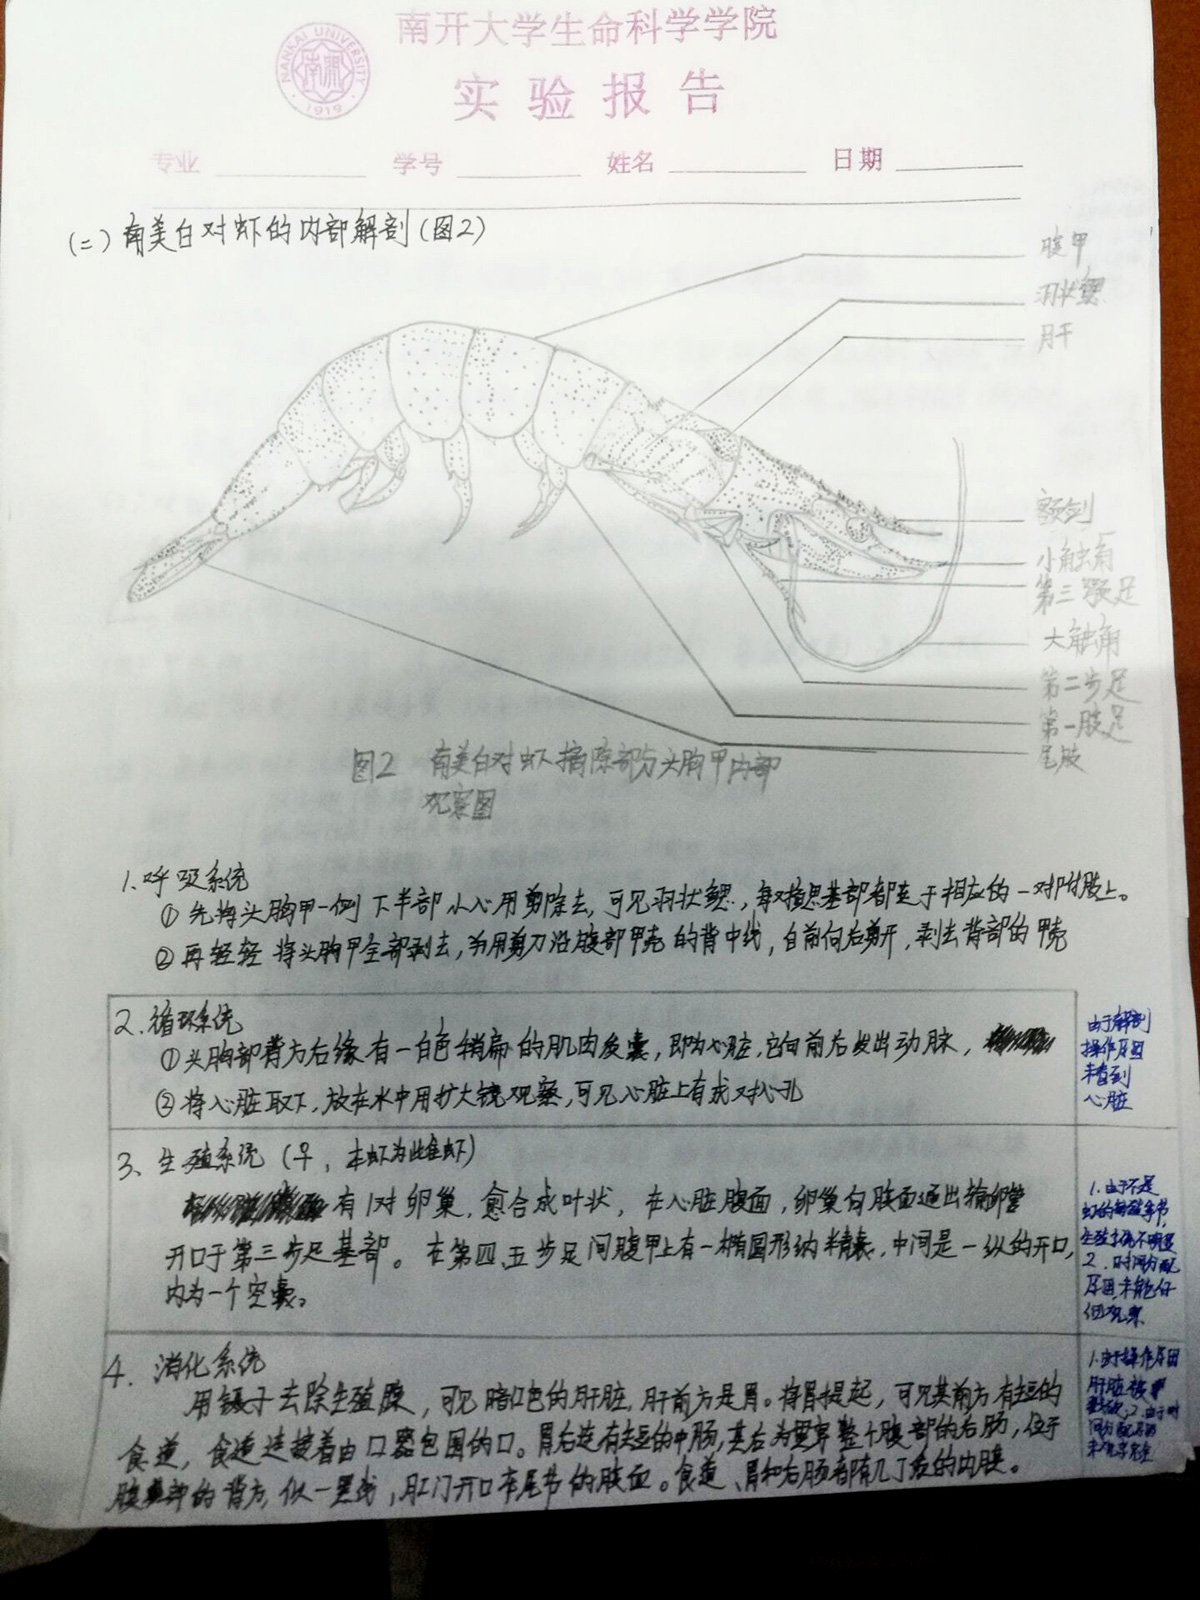 南开大学生命科学学院
NANKAI UNIVERSITY
1919
实验报告
专业 学号 姓名 日期
(二)南美白对虾的内部解剖(图2)
腹甲
羽状鳃
肝
额剑
小触角
第三颚足
大触角
第二步足
第一肢足
尾肢
图2 南美白对虾摘除部分头胸甲内部
观察图
1.呼吸系统
①先将头胸甲一侧下半部小心用剪除去,可见羽状鳃,每对鳃基部都连于相应的一对附肢上。
②再轻轻将头胸甲全部剥去,并用剪刀沿腹部甲壳的背中线,自前向后剪开,剥去背部的甲壳
2.循环系统
①头胸部背方后缘有一白色稍扁的肌肉质囊,即为心脏,它向前后发出动脉,
②将心脏取下,放在水中用扩大镜观察,可见心脏上有成对心孔
由于解剖
操作原因
未看到
心脏
3、生殖系统(♀,本虾为雌虾)
有1对卵巢,愈合成叶状,在心脏腹面,卵巢向腹面通出输卵管
开口于第三步足基部。在第四、五步足间腹甲上有一椭圆形纳精囊,中间是一纵的开口,
内为一个空囊。
1.由于不是
虾的繁殖季节,
生殖系统不明显
2.时间分配
原因,未能仔
细观察
4.消化系统
用镊子去除生殖腺,可见暗红色的肝脏,肝前方是胃。将胃提起,可见其前方有短的
食道,食道连接着由口器包围的口。胃后连有短的中肠,其后为贯穿整个腹部的后肠,位于
腹部的背方,似一黑线,肛门开口在尾节的腹面。食道、胃和后肠都有几丁质的内膜。
1.由于操作原因
肝脏被
2.由于时
间分配原因